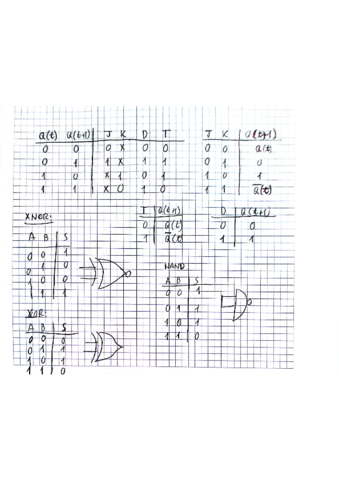 Q(t) Q(t+1) J K D T
0 0 0 X 0 0
0 1 1 X 1 1
1 0 X 1 0 1
1 1 X 0 1 0
J K Q(t+1)
0 0 Q(t)
0 1 0
1 0 1
1 1 Q̅(t)
T Q(t+1)
0 Q(t)
1 Q̅(t)
D Q(t+1)
0 0
1 1
XNOR:
A B S
0 0 1
0 1 0
1 0 0
1 1 1
NAND
A B S
0 0 1
0 1 1
1 0 1
1 1 0
XOR:
A B S
0 0 0
0 1 1
1 0 1
1 1 0